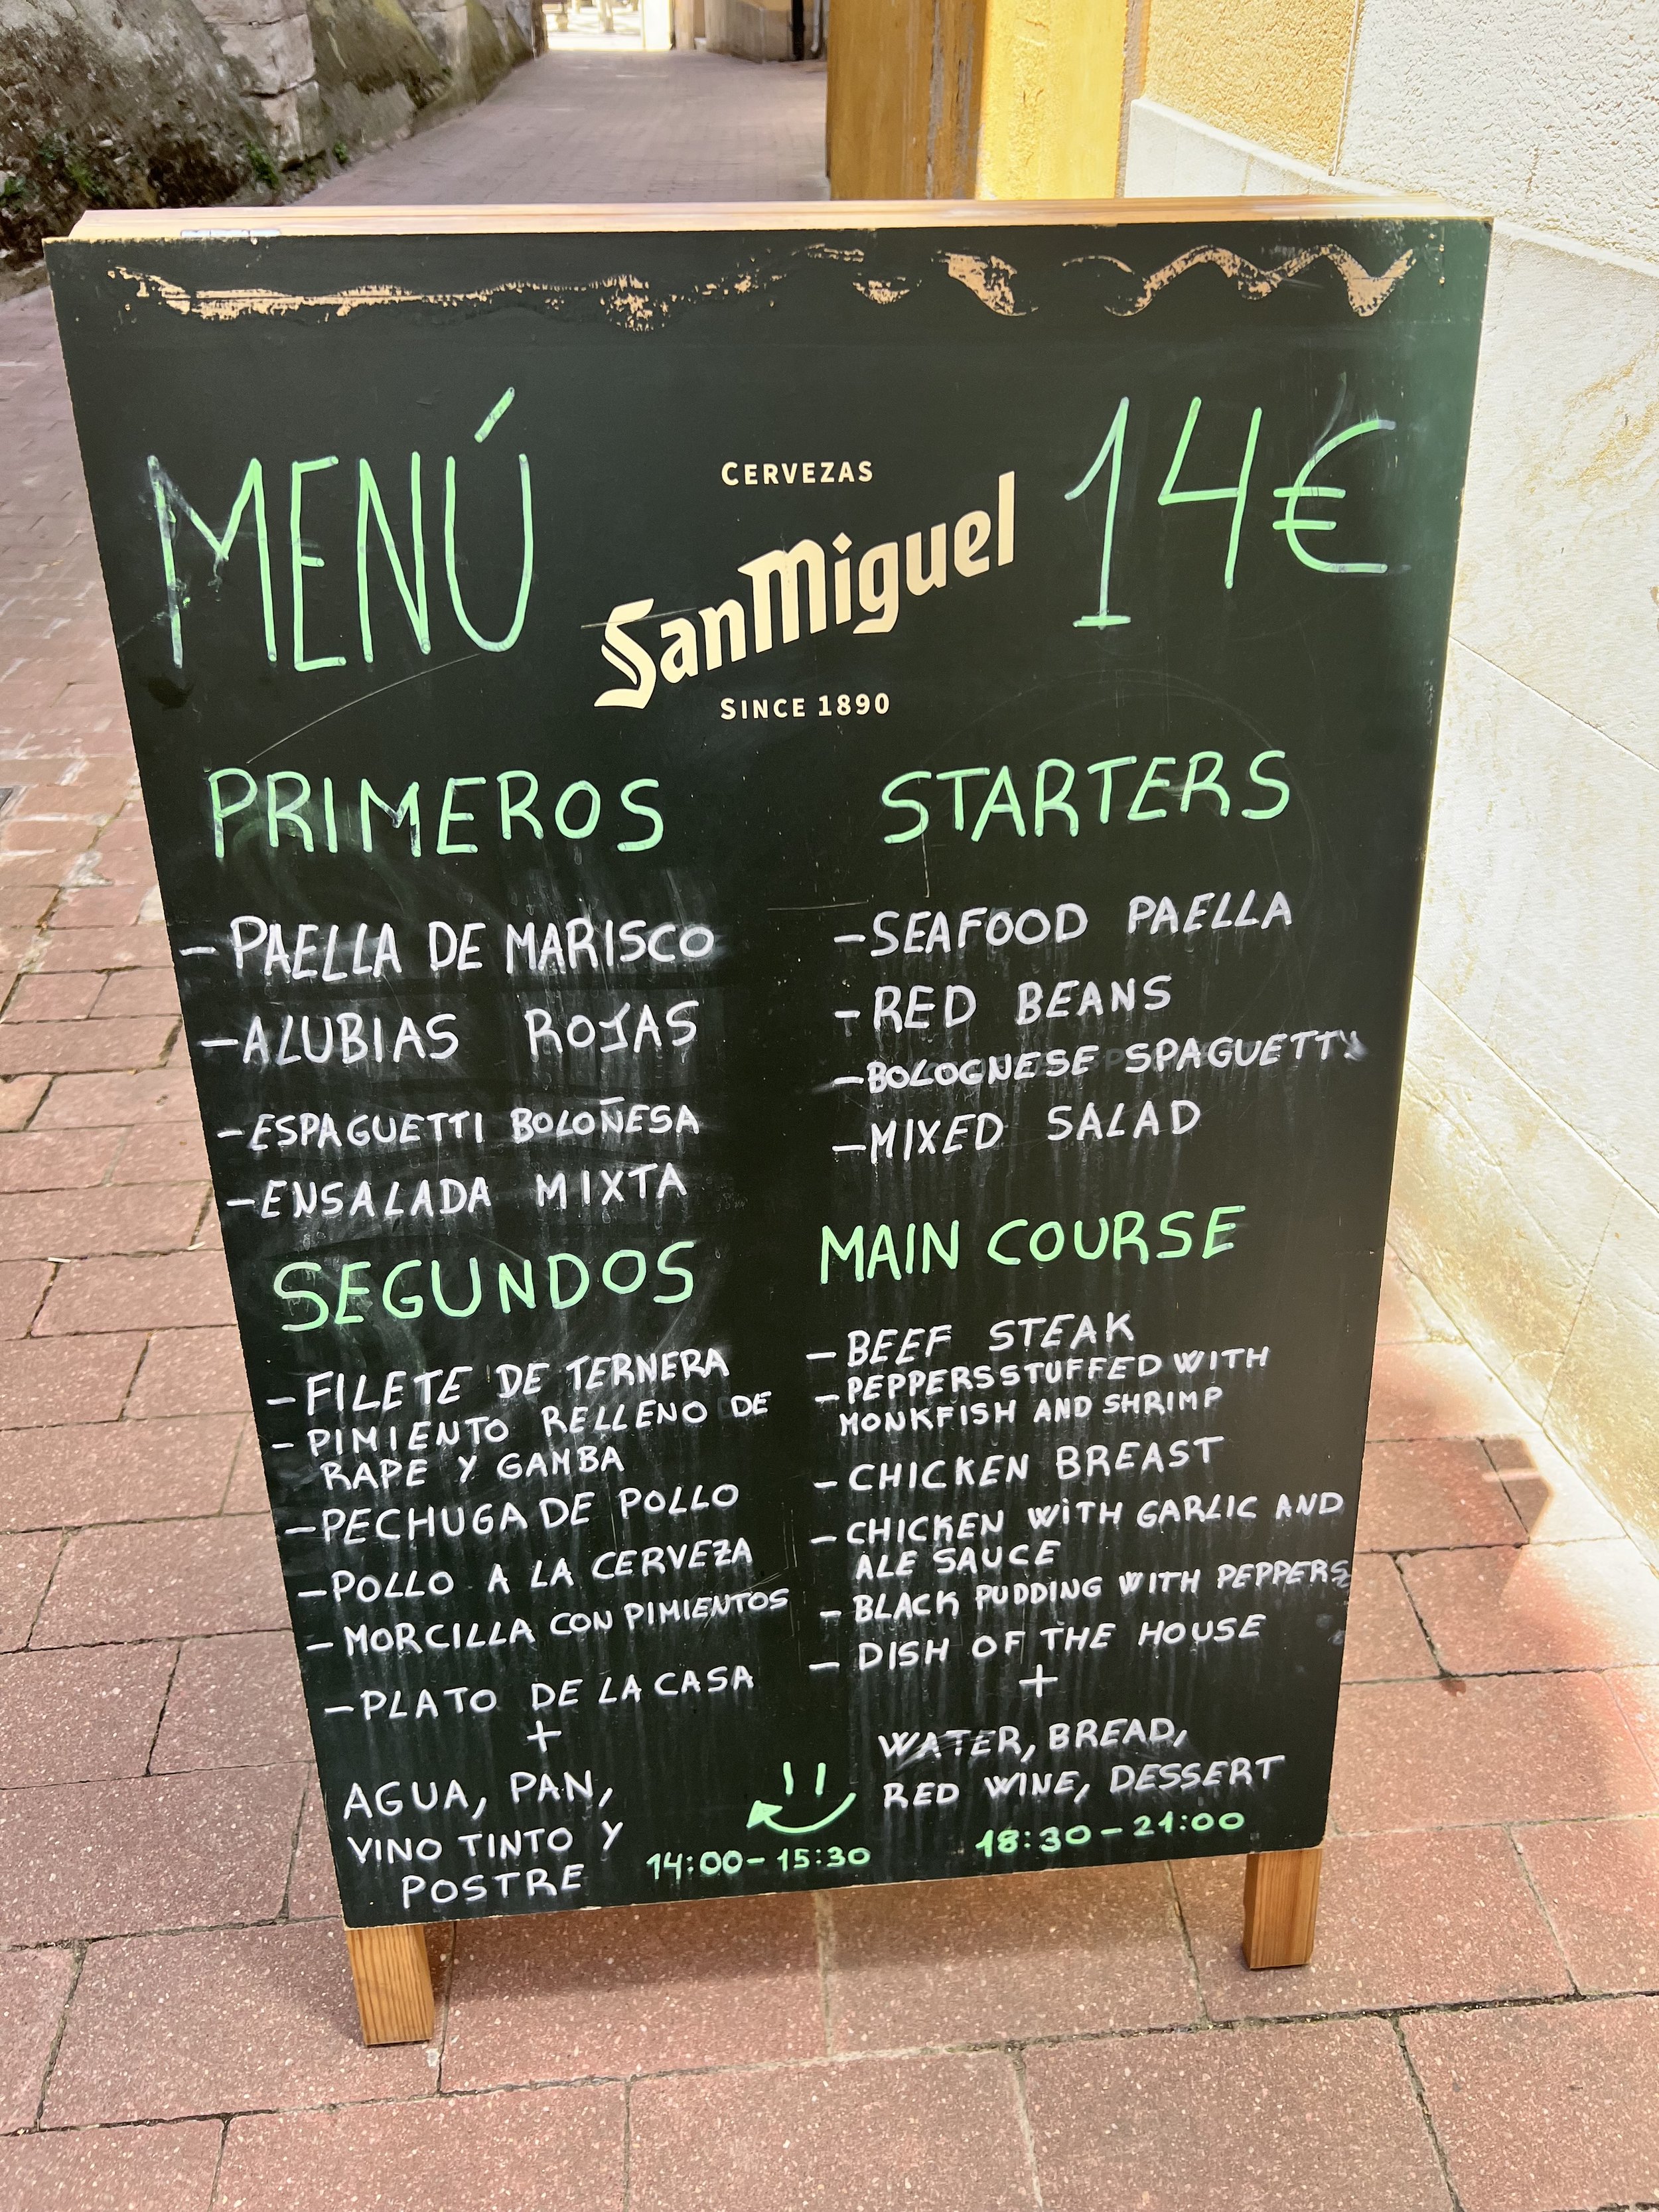 MENÚ
CERVEZAS
SanMiguel
SINCE 1890
14€
PRIMEROS
-PAELLA DE MARISCO
-ALUBIAS ROJAS
-ESPAGUETTI BOLOÑESA
-ENSALADA MIXTA
SEGUNDOS
-FILETE DE TERNERA
-PIMIENTO RELLENO DE
RAPE Y GAMBA
-PECHUGA DE POLLO
-POLLO A LA CERVEZA
-MORCILLA CON PIMIENTOS
-PLATO DE LA CASA
+
AGUA, PAN,
VINO TINTO Y
POSTRE
STARTERS
-SEAFOOD PAELLA
-RED BEANS
-BOLOGNESE SPAGUETTY
-MIXED SALAD
MAIN COURSE
-BEEF STEAK
-PEPPERS STUFFED WITH
MONKFISH AND SHRIMP
-CHICKEN BREAST
-CHICKEN WITH GARLIC AND
ALE SAUCE
-BLACK PUDDING WITH PEPPERS
-DISH OF THE HOUSE
+
WATER, BREAD,
RED WINE, DESSERT
14:00-15:30
18:30-21:00